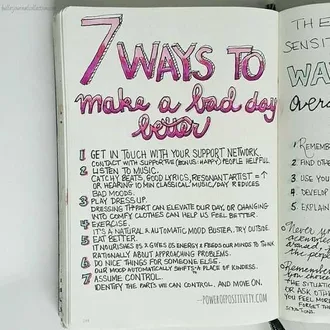 7 WAYS TO
make a bad day
better
1 GET IN TOUCH WITH YOUR SUPPORT NETWORK.
CONTACT WITH SUPPORTIVE (BONUS: HAPPY) PEOPLE HELPFUL
2 LISTEN TO MUSIC.
CATCHY BEATS, GOOD LYRICS, RESONANT ARTIST = ↑
OR HEARING 10 MIN CLASSICAL MUSIC/DAY REDUCES
BAD MOODS.
3 PLAY DRESS UP.
DRESSING PART CAN ELEVATE OUR DAY, OR CHANGING
INTO COMFY CLOTHES CAN HELP US FEEL BETTER.
4 EXERCISE.
IT'S A NATURAL & AUTOMATIC MOOD BOOSTER, TRY OUTSIDE
5 EAT BETTER.
IT NOURISHES US & GIVES US ENERGY & FEEDS OUR MINDS TO THINK
RATIONALLY ABOUT APPROACHING PROBLEMS.
6 DO NICE THINGS FOR SOMEONE ELSE.
OUR MOOD AUTOMATICALLY SHIFTS A PLACE OF KINDNESS.
7 ASSUME CONTROL.
IDENTIFY THE PARTS WE CAN CONTROL, AND MOVE ON.
—POWEROFPOSITIVITY.COM
THE
SENSIT
WA
over
1 REMEMB
2 FIND OTHE
3 USE YOU
4 DEVELOP
5 EXPLAIN
Never
the peop
Remember
you choo
THE SITUATION
OR ASK OTHE
YOU FEEL MOR
FORGET
THIS